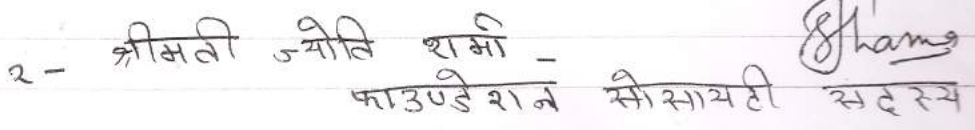 २- श्रीमती ज्योति शर्मा -
फाउण्डेशन सोसायटी सदस्य